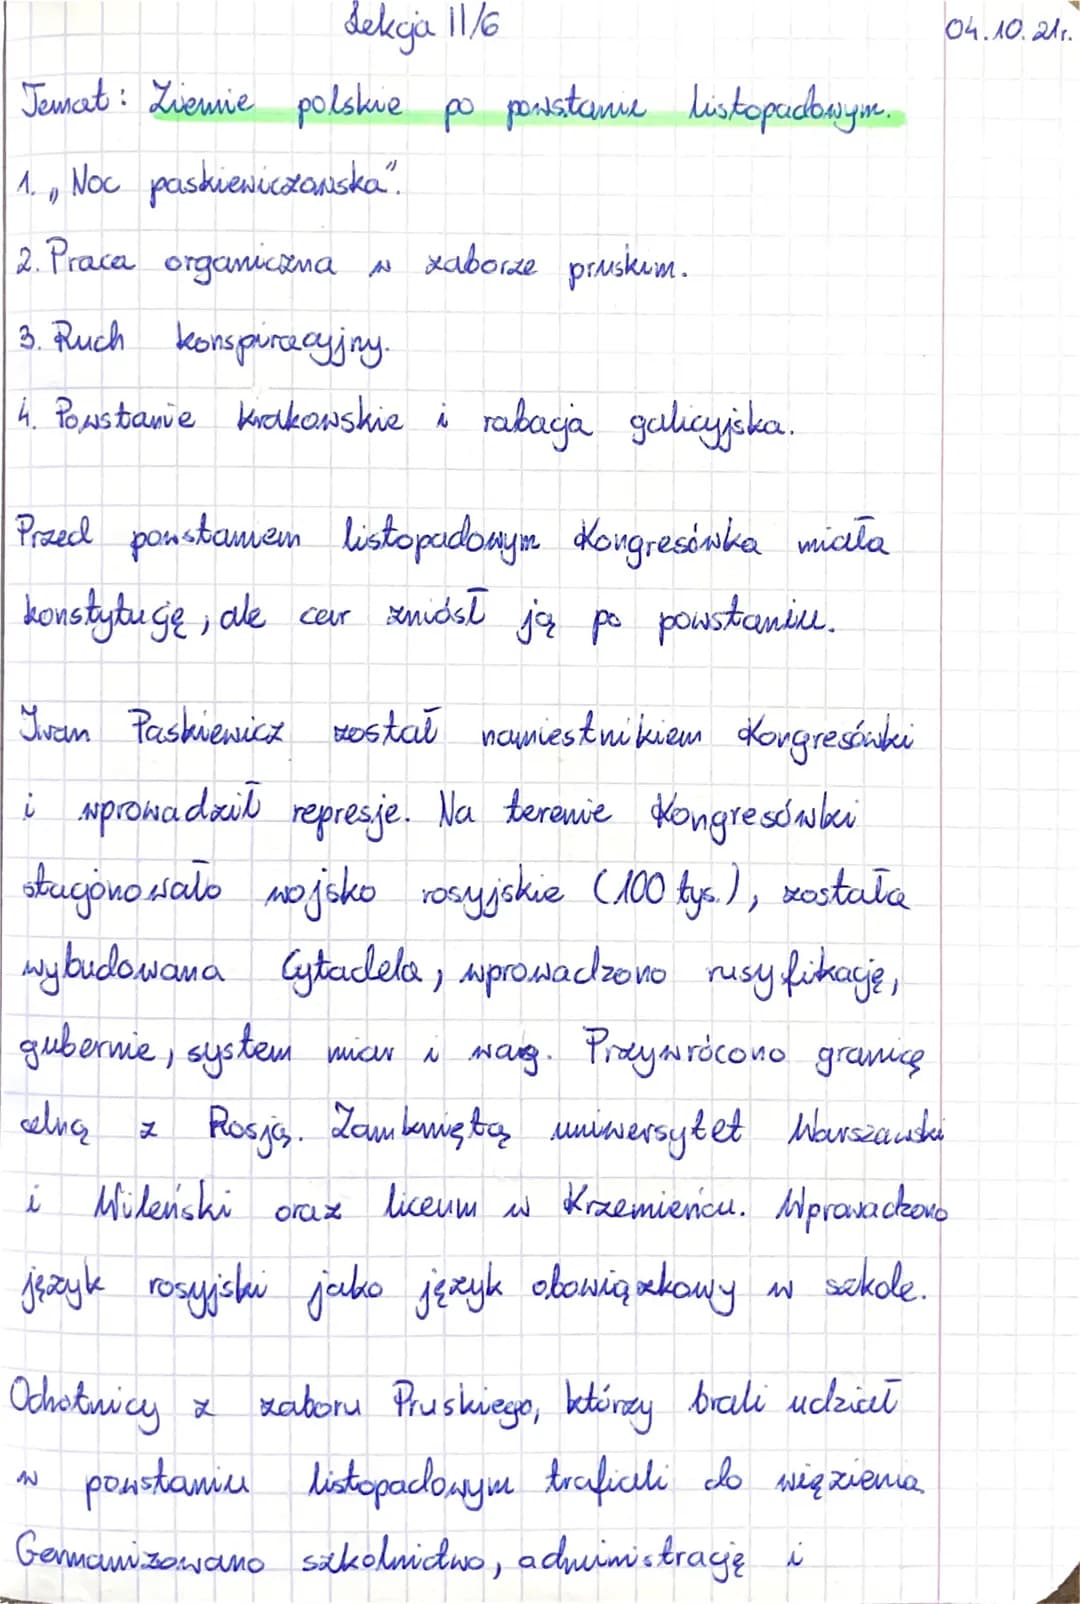 Lekcja 11/6
04.10.21r.
Temat: Ziemie polskie po powstaniu listopadowym.
1. „Noc paskiewiczowska".
2. Praca organiczna w zaborze pruskim.
3. Ruch konspiracyjny.
4. Powstanie krakowskie i rabacja galicyjska.
Przed powstaniem listopadowym Kongresówka miała
konstytucję, ale car zniósł ją po powstaniu.
Iwan Paskiewicz został namiestnikiem Kongresówki
i wprowadził represje. Na terenie Kongresówki
stacjonowało wojsko rosyjskie (100 tys.), została
wybudowana Cytadela, wprowadzono rusyfikację,
gubernie, system miar i wag. Przywrócono granicę
celną z Rosją. Zamknięto uniwersytet Warszawski
i Wileński oraz liceum w Krzemieńcu. Wprowadzono
język rosyjski jako język obowiązkowy w szkole.
Ochotnicy z zaboru Pruskiego, którzy brali udział
w powstaniu listopadowym trafiali do więzienia
Germanizowano szkolnictwo, administrację i